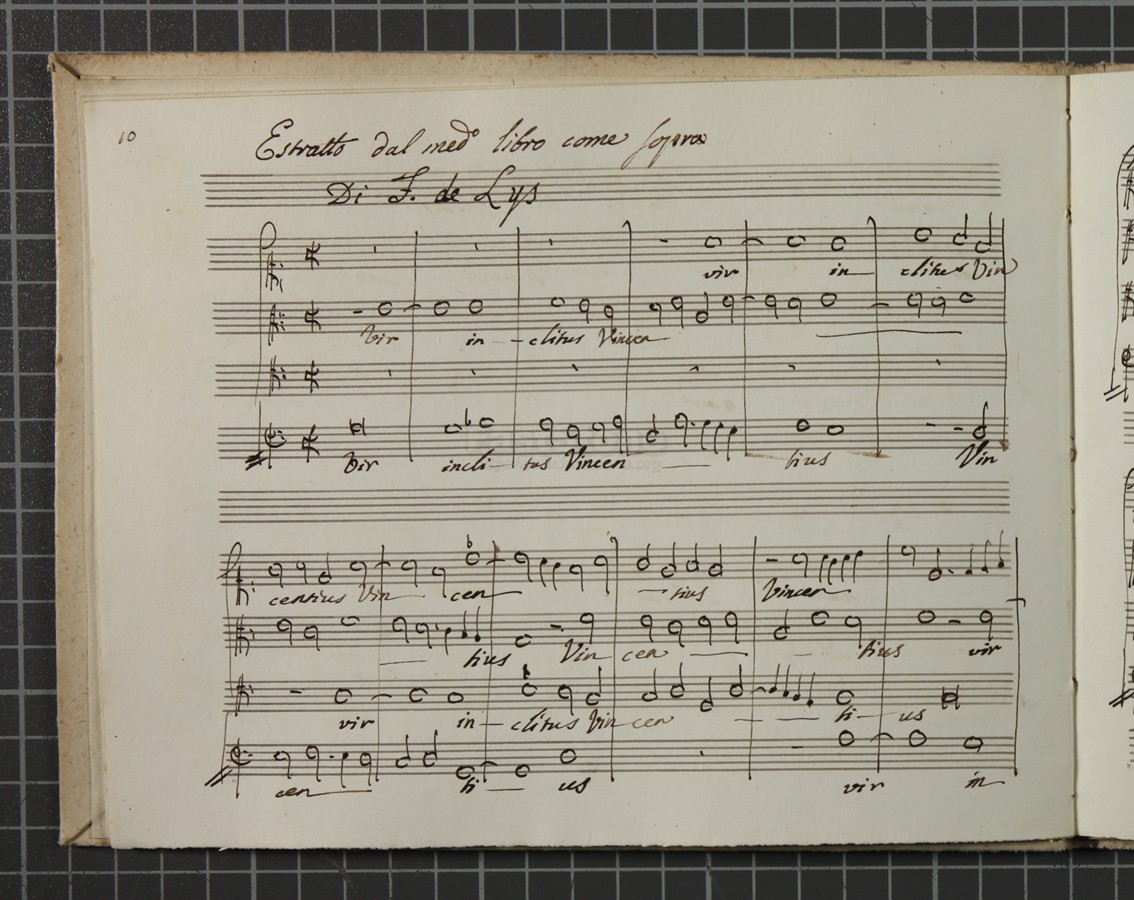 10
Estratto dal med.o libro come sopra
Di F. de Lys
vir in clitus Vin
Vir in - clitus Vincen
Vir incli tus Vincen tius Vin
centius Vin cen tius Vincen
tius Vin cen tius vir
vir in - clitus Vin cen ti - us
cen ti us vir in